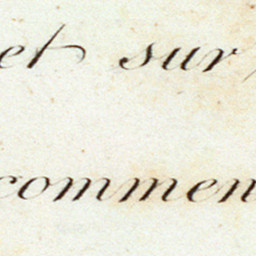 et sur
commen